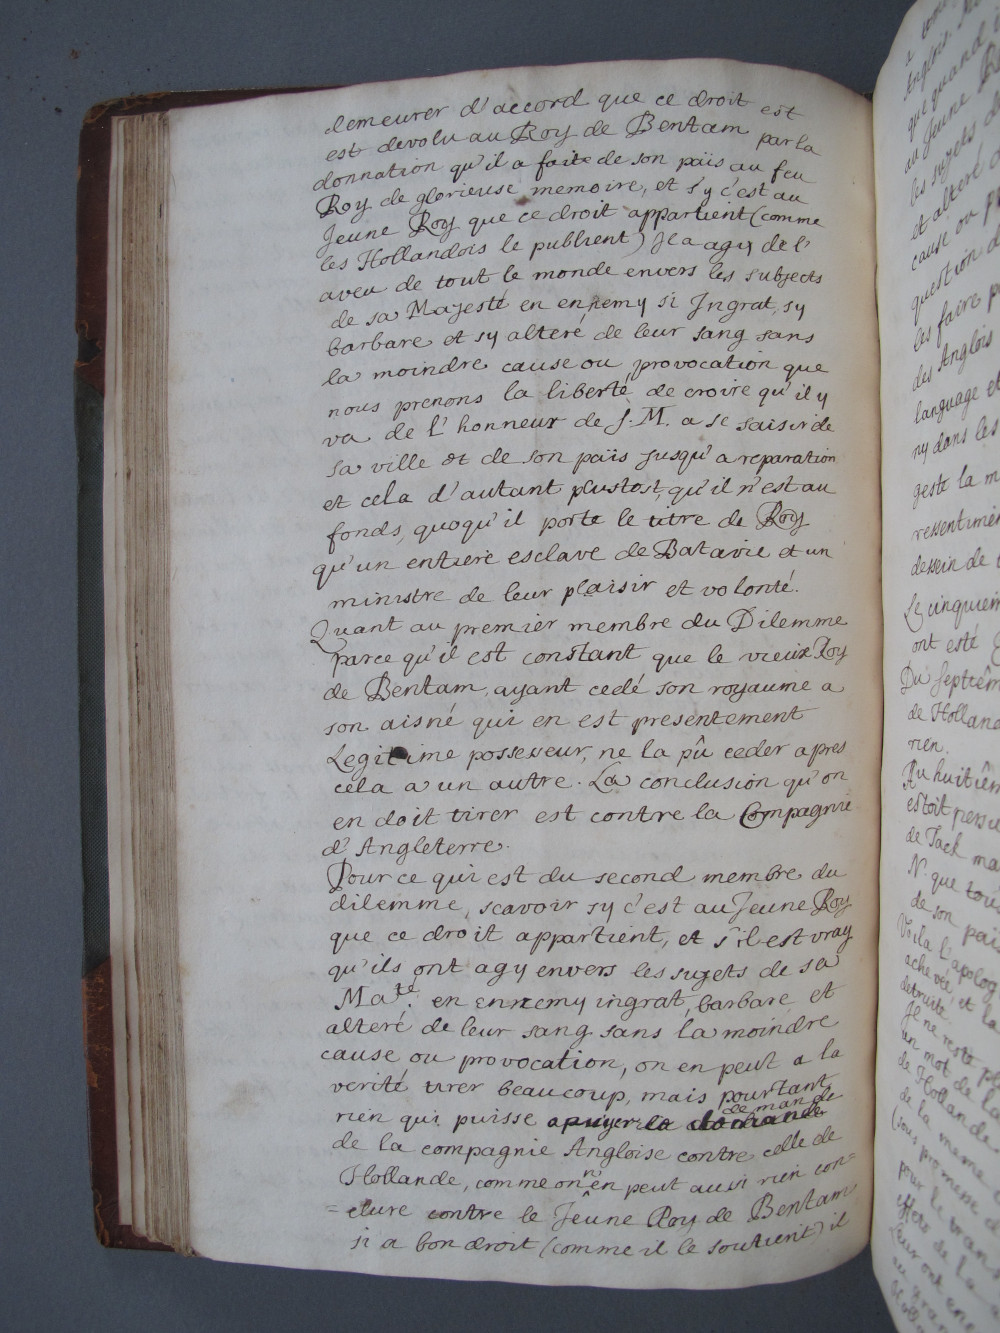 demeurer d'accord que ce droit est
est devolu au Roy de Bentam par la
donnation qu'il a faite de son païs au feu
Roy de glorieuse memoire, et s'y c'est au
Jeune Roy que ce droit appartient (comme
les Hollandois le publient) Il a agy de l'
aveu de tout le monde envers les subjects
de sa Majesté en ennemy si Ingrat, sy
barbare et sy alteré de leur sang sans
la moindre cause ou provocation que
nous prenons la liberté de croire qu'il y
va de l'honneur de S. M. a se saisir de
sa ville et de son païs jusqu'a reparation
et cela d'autant plustost, qu'il n'est au
fonds, quoqu'il porte le titre de Roy
qu'un entiere esclave de Batavie et un
ministre de leur plaisir et volonté.
Quant au premier membre du Dilemme
parce qu'il est constant que le vieux Roy
de Bentam, ayant cedé son royaume a
son aisné qui en est presentement
Legitime possesseur, ne la pû ceder apres
cela a un autre. La conclusion qu'on
en doit tirer est contre la Compagnie
d'Angleterre.
Pour ce qui est du second membre du
dilemme, scavoir sy c'est au Jeune Roy
que ce droit appartient, et s'il est vray
qu'ils ont agy envers les sujets de sa
Ma.te en ennemy ingrat, barbare et
alteré de leur sang sans la moindre
cause ou provocation, on en peut a la
verité tirer beaucoup, mais pourtant
rien qui puisse apuyer la demande
de la compagnie Angloise contre celle de
Hollande, comme on n'en peut aussi rien con=
=clure contre le Jeune Roy de Bentam
si a bon droit (comme il le soutient) il
Anglois
que quand
au Jeune
les sujets
et alteré
cause ou
question
les faire
des Anglois
language et
ny dans les
geste la
dessein de
Le cinquiem
ont esté
Du septiêm
de Holland
rien.
Au huitiêm
estoit
de Jack
N. que
de son païs
Voila l'apolog
achevée et la
detruite
Il ne reste
un mot de la
de Hollande
de la meme
(sous promesse
pour le
effets de la
Leur ont
au gran